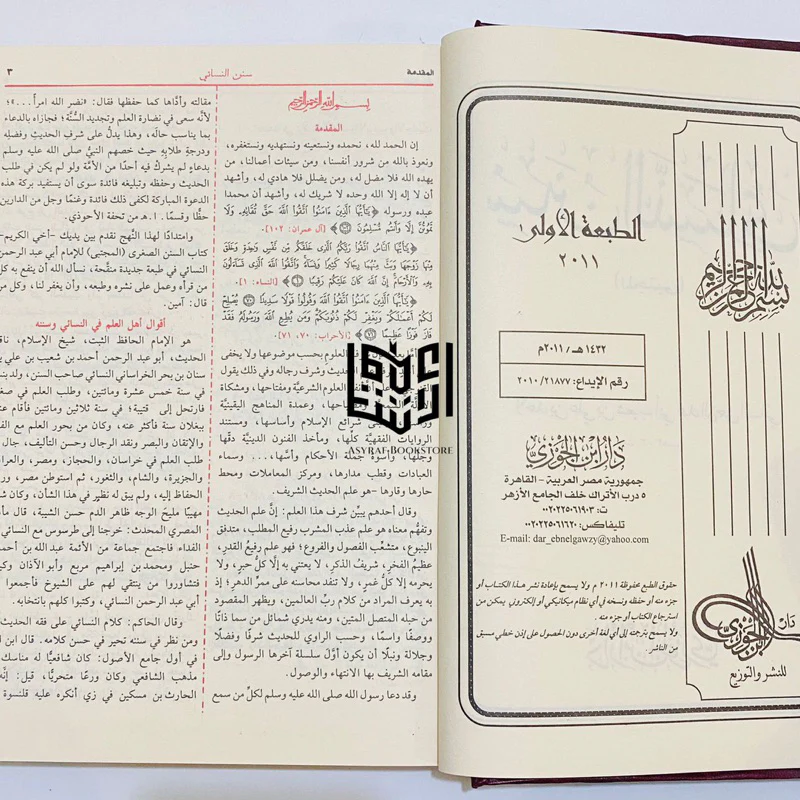 الطبعة الأولى
٢٠١١
١٤٣٢ هـ / ٢٠١١م
رقم الإيداع: ٢٠١٠/٢١٨٧٧
دار ابن الجوزي
جمهورية مصر العربية - القاهرة
٥ درب الأتراك خلف الجامع الأزهر
ت: ٠٠٢٠٢٢٥٠٦١٩٠٣
تليفاكس: ٠٠٢٠٢٢٥٠٦١٦٢٠
E-mail: dar_ebnelgawzy@yahoo.com
حقوق الطبع محفوظة ٢٠١١ م ولا يسمح بإعادة نشر هذا الكتاب أو
جزء منه أو حفظه ونسخه في أي نظام ميكانيكي أو إلكتروني يمكن من
استرجاع الكتاب أو جزء منه.
ولا يسمح بترجمته إلى لغة أخرى دون الحصول على إذن خطي مسبق
من الناشر.
بسم الله الرحمن الرحيم
دار
ابن الجوزي
للنشر والتوزيع
المقدمة
سنن النسائي
٣
بسم الله الرحمن الرحيم
المقدمة
إن الحمد لله، نحمده ونستعينه ونستهديه ونستغفره،
ونعوذ بالله من شرور أنفسنا، ومن سيئات أعمالنا، من
يهده الله فلا مضل له، ومن يضلل فلا هادي له، وأشهد
أن لا إله إلا الله وحده لا شريك له، وأشهد أن محمدا
عبده ورسوله ﴿يَٰٓأَيُّهَا ٱلَّذِينَ ءَامَنُوا۟ ٱتَّقُوا۟ ٱللَّهَ حَقَّ تُقَاتِهِۦ وَلَا
تَمُوتُنَّ إِلَّا وَأَنتُم مُّسْلِمُونَ ۝﴾ [آل عمران: ١٠٢].
﴿يَٰٓأَيُّهَا ٱلنَّاسُ ٱتَّقُوا۟ رَبَّكُمُ ٱلَّذِى خَلَقَكُم مِّن نَّفْسٍ وَٰحِدَةٍ وَخَلَقَ
مِنْهَا زَوْجَهَا وَبَثَّ مِنْهُمَا رِجَالًا كَثِيرًا وَنِسَآءً وَٱتَّقُوا۟ ٱللَّهَ ٱلَّذِى تَسَآءَلُونَ
بِهِۦ وَٱلْأَرْحَامَ إِنَّ ٱللَّهَ كَانَ عَلَيْكُمْ رَقِيبًا ۝﴾ [النساء: ١]
﴿يَٰٓأَيُّهَا ٱلَّذِينَ ءَامَنُوا۟ ٱتَّقُوا۟ ٱللَّهَ وَقُولُوا۟ قَوْلًا سَدِيدًا ۝ يُصْلِحْ
لَكُمْ أَعْمَٰلَكُمْ وَيَغْفِرْ لَكُمْ ذُنُوبَكُمْ وَمَن يُطِعِ ٱللَّهَ وَرَسُولَهُۥ فَقَدْ
فَازَ فَوْزًا عَظِيمًا ۝﴾ [الأحزاب: ٧٠، ٧١]
العلوم بحسب موضوعها ولا يخفى
الحديث وشرف رجاله وفي ذلك يقول
العلوم الشرعية ومفتاحها، ومشكاة
وعمدة المناهج اليقينية
شرائع الإسلام وأساسها، ومستند
الروايات الفقهية كلها، ومأخذ الفنون الدينية دقها
وجلها، وأسوة جملة الأحكام وأسها... وسماء
العبادات وقطب مدارها، ومركز المعاملات ومحط
حارها وقارها -هو علم الحديث الشريف.
وقال أحدهم يبيِّن شرف هذا العلم: إن علم الحديث
وتفهُّم معناه هو علم عذب المشرب رفيع المطلب، متدفق
الينبوع، متشعِّب الفصول والفروع؛ فهو علم رفيع القدر،
عظيم الفخر، شريف الذكر، لا يعتني به إلا كل حبر، ولا
يحرمه إلا كل غمر، ولا تنفد محاسنه على ممر الدهر؛ إذ
به يعرف المراد من كلام رب العالمين، ويظهر المقصود
من حبله المتصل المتين، ومنه يدري شمائل من سما ذاتًا
ووصفًا واسمًا، وحسب الراوي للحديث شرفا وفضلًا
وجلالة ونبلًا أن يكون أوَّل سلسلة آخرها الرسول وإلى
مقامه الشريف بها الانتهاء والوصول.
وقد دعا رسول الله صلى الله عليه وسلم لكلِّ من سمع
مقالته وأدَّاها كما حفظها فقال: «نضر الله امرأ ...»؛
لأنَّه سعى في نضارة العلم وتجديد السُّنَّة؛ فجازاه بالدعاء
بما يناسب حاله، وهذا يدلُّ على شرف الحديث وفضله
ودرجة طلابه حيث خصهم النبيُّ صلى الله عليه وسلم
بدعاءٍ لم يشركْ فيه أحدًا من الأمَّة ولو لم يكن في طلب
الحديث وحفظه وتبليغه فائدة سوى أن يستفيد بركة هذه
الدعوة المباركة لكفى ذلك فائدة وغنمًا وجل من الدارين
حظًّا وقسمًا. ا.هـ من تحفة الأحوذي.
وامتدادًا لهذا النَّهج نقدم بين يديك -أخي الكريم-
كتاب السنن الصغرى (المجتبى) للإمام أبي عبد الرحمن
النسائي في طبعة جديدة منقَّحة، نسأل الله أن ينفع به كل
من قرأه وعمل على نشره وطبعه، وأن يغفر لنا، وكل من
قال: آمين.
أقوال أهل العلم في النسائي وسننه
هو الإمام الحافظ الثبت، شيخ الإسلام، ناقد
الحديث، أبو عبد الرحمن أحمد بن شعيب بن علي
سنان بن بحر الخراساني النسائي صاحب السنن، ولد بنسا
في سنة خمس عشرة ومائتين، وطلب العلم في صغره
فارتحل إلى قتيبة؛ في سنة ثلاثين ومائتين فأقام عنده
ببغلان سنة فأكثر عنه، وكان من بحور العلم مع الفهم
والإتقان والبصر ونقد الرجال وحسن التأليف، جال في
طلب العلم في خراسان، والحجاز، ومصر، والعراق
والجزيرة، والشام، والثغور، ثم استوطن مصر، ورحل
الحفاظ إليه، ولم يبق له نظير في هذا الشأن، وكان شيخًا
مهيبًا مليحَ الوجه ظاهر الدم حسن الشيبة، قال مأمون
المصري المحدث: خرجنا إلى طرسوس مع النسائي سنة
الفداء فاجتمع جماعة من الأئمة عبد الله بن أحمد بن
حنبل ومحمد بن إبراهيم مربع وأبو الآذان وكيلجة
فتشاوروا من ينتقي لهم على الشيوخ فأجمعوا على
أبي عبد الرحمن النسائي، وكتبوا كلهم بانتخابه.
وقال الحاكم: كلام النسائي على فقه الحديث كثير
ومن نظر في سننه تحير في حسن كلامه. قال ابن الأثير
في أول جامع الأصول: كان شافعيًّا له مناسك على
مذهب الشافعي وكان ورعًا متحريًا، قيل: إنَّه أتى
الحارث بن مسكين في زي أنكره عليه قلنسوة
ASYRAF BOOKSTORE